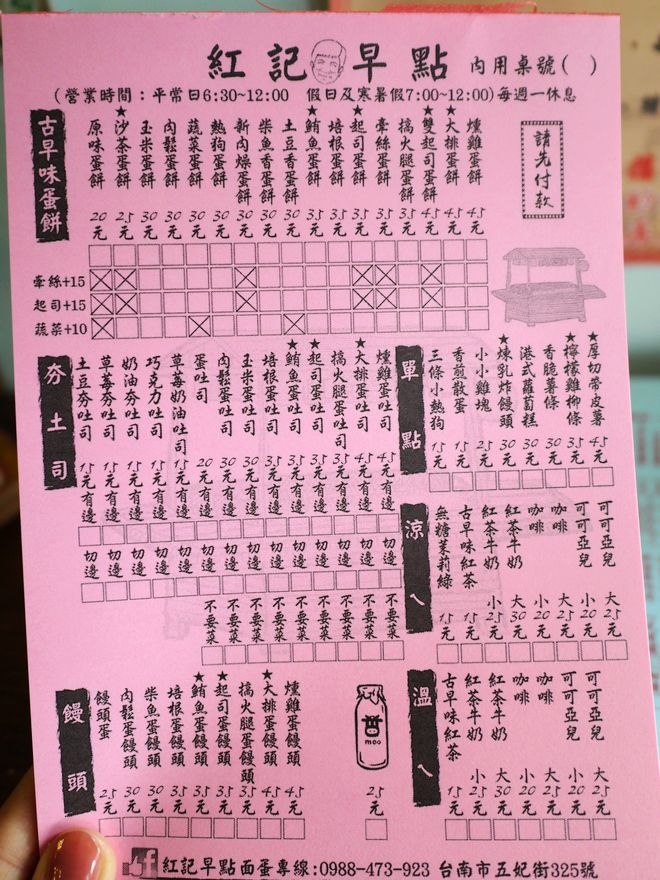 紅記早點 內用桌號( )
(營業時間:平常日6:30~12:00 假日及寒暑假7:00~12:00)每週一休息
請先付款
古早味蛋餅
原味蛋餅 20元
★沙茶蛋餅 25元
玉米蛋餅 30元
肉鬆蛋餅 30元
蔬菜蛋餅 30元
熱狗蛋餅 30元
新肉燥蛋餅 30元
柴魚香蛋餅 30元
土豆香蛋餅 30元
★鮪魚蛋餅 35元
培根蛋餅 35元
★起司蛋餅 35元
牽絲蛋餅 35元
搞火腿蛋餅 35元
★雙起司蛋餅 45元
★大排蛋餅 45元
燻雞蛋餅 45元
牽絲+15
起司+15
蔬菜+10
夯土司
土豆夯吐司 15元有邊 切邊
草莓夯吐司 15元有邊 切邊
奶油夯吐司 15元有邊 切邊
巧克力吐司 15元有邊 切邊
草莓奶油吐司 15元有邊 切邊
蛋吐司 20元有邊 切邊 不要菜
肉鬆蛋吐司 30元有邊 切邊 不要菜
玉米蛋吐司 30元有邊 切邊 不要菜
培根蛋吐司 35元有邊 切邊 不要菜
★鮪魚蛋吐司 35元有邊 切邊 不要菜
★起司蛋吐司 35元有邊 切邊 不要菜
搞火腿蛋吐司 35元有邊 切邊 不要菜
★大排蛋吐司 45元有邊 切邊 不要菜
燻雞蛋吐司 45元有邊 切邊 不要菜
單點
三條小熱狗 15元
香煎散蛋 15元
小小雞塊 25元
★煉乳炸饅頭 30元
港式蘿蔔糕 30元
香脆薯條 30元
★檸檬雞柳條 35元
★厚切帶皮薯 45元
涼ㄟ
無糖茉莉綠 15元
古早味紅茶 15元
紅茶牛奶 小25元
紅茶牛奶 大30元
咖啡 小20元
咖啡 大25元
可可亞兒 小20元
可可亞兒 大25元
饅頭
饅頭蛋 25元
肉鬆蛋饅頭 30元
柴魚蛋饅頭 30元
培根蛋饅頭 35元
★鮪魚蛋饅頭 35元
★起司蛋饅頭 35元
搞火腿蛋饅頭 35元
★大排蛋饅頭 45元
燻雞蛋饅頭 45元
moo
25元
溫ㄟ
古早味紅茶 15元
紅茶牛奶 小25元
紅茶牛奶 大30元
咖啡 小20元
咖啡 大25元
可可亞兒 小20元
可可亞兒 大25元
f 紅記早點面蛋專線:0988-473-923 台南市五妃街325號